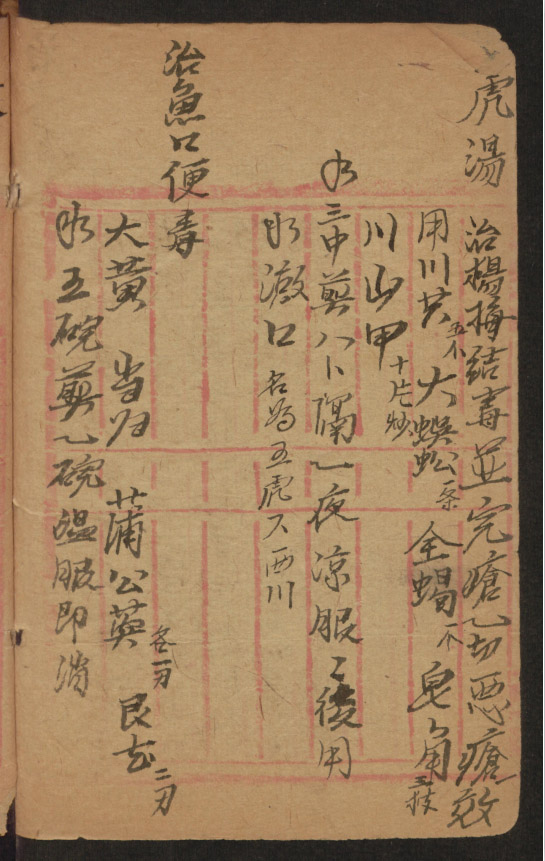 虎湯
治楊梅結毒並完瘡乙切惡瘡效
用川芎五个 大蜈蚣一条 全蝎一个 皂角三技
川山甲十片炒
水三中煎八卜隔乙夜凉服〻後用
水漱口 名為五虎下西川
治魚口便毒
大黄 当归 蒲公英各一刃 艮花二刃
水五碗煎乙碗温服即消